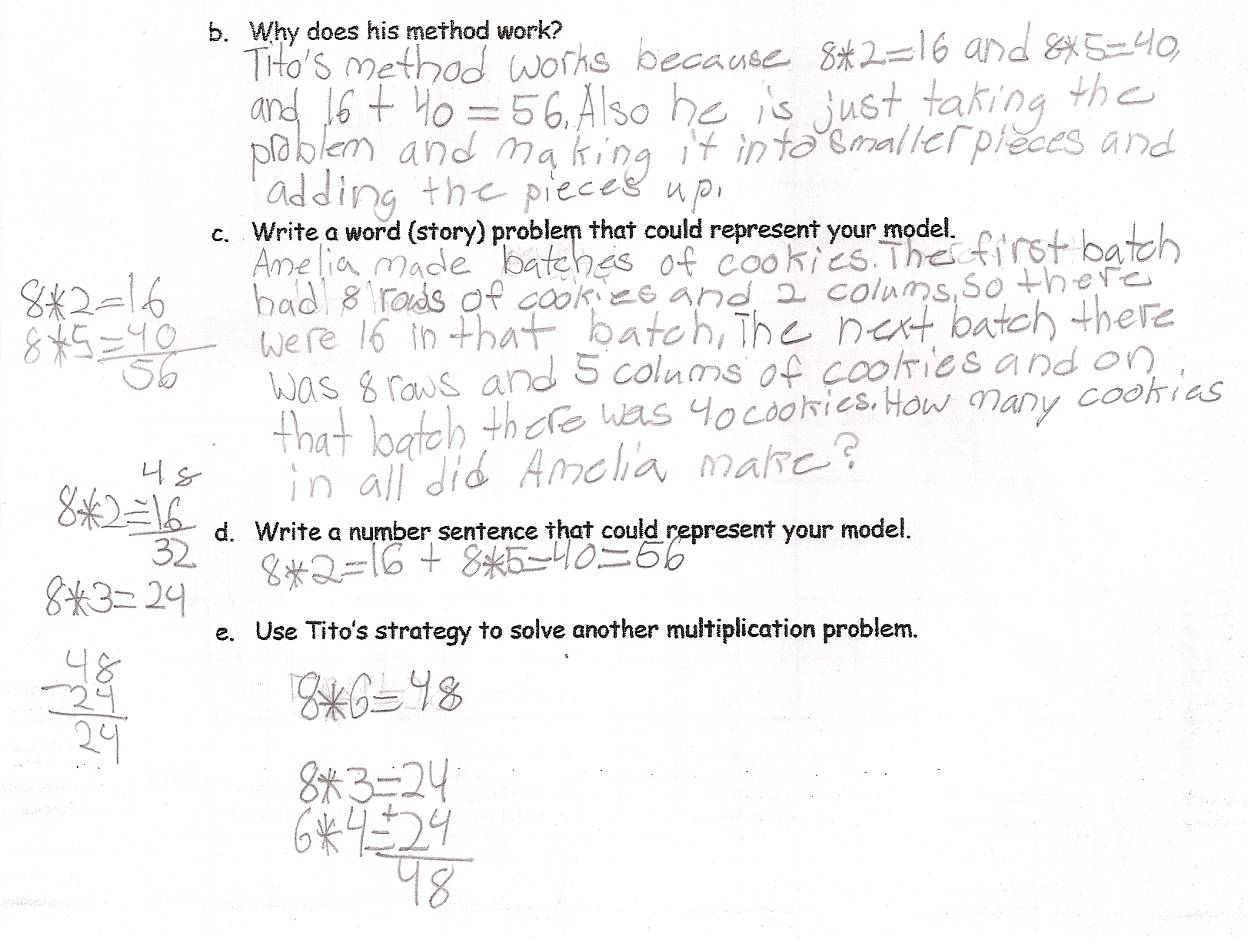 b. Why does his method work?
Tito's method works because 8*2=16 and 8*5=40,
and 16 + 40 = 56. Also he is just taking the
problem and making it into smaller pieces and
adding the pieces up.
c. Write a word (story) problem that could represent your model.
Amelia made batches of cookies. The first batch
had 8 rows of cookies and 2 colums, so there
were 16 in that batch, The next batch there
was 8 rows and 5 colums of cookies and on
that batch there was 40 cookies. How many cookies
in all did Amelia make?
8*2=16
8*5=40
56
d. Write a number sentence that could represent your model.
8*2=16 + 8*5=40=56
48
8*2=16
32
8*3=24
48
-24
24
e. Use Tito's strategy to solve another multiplication problem.
8*6=48
8*3=24
6*4=+24
48